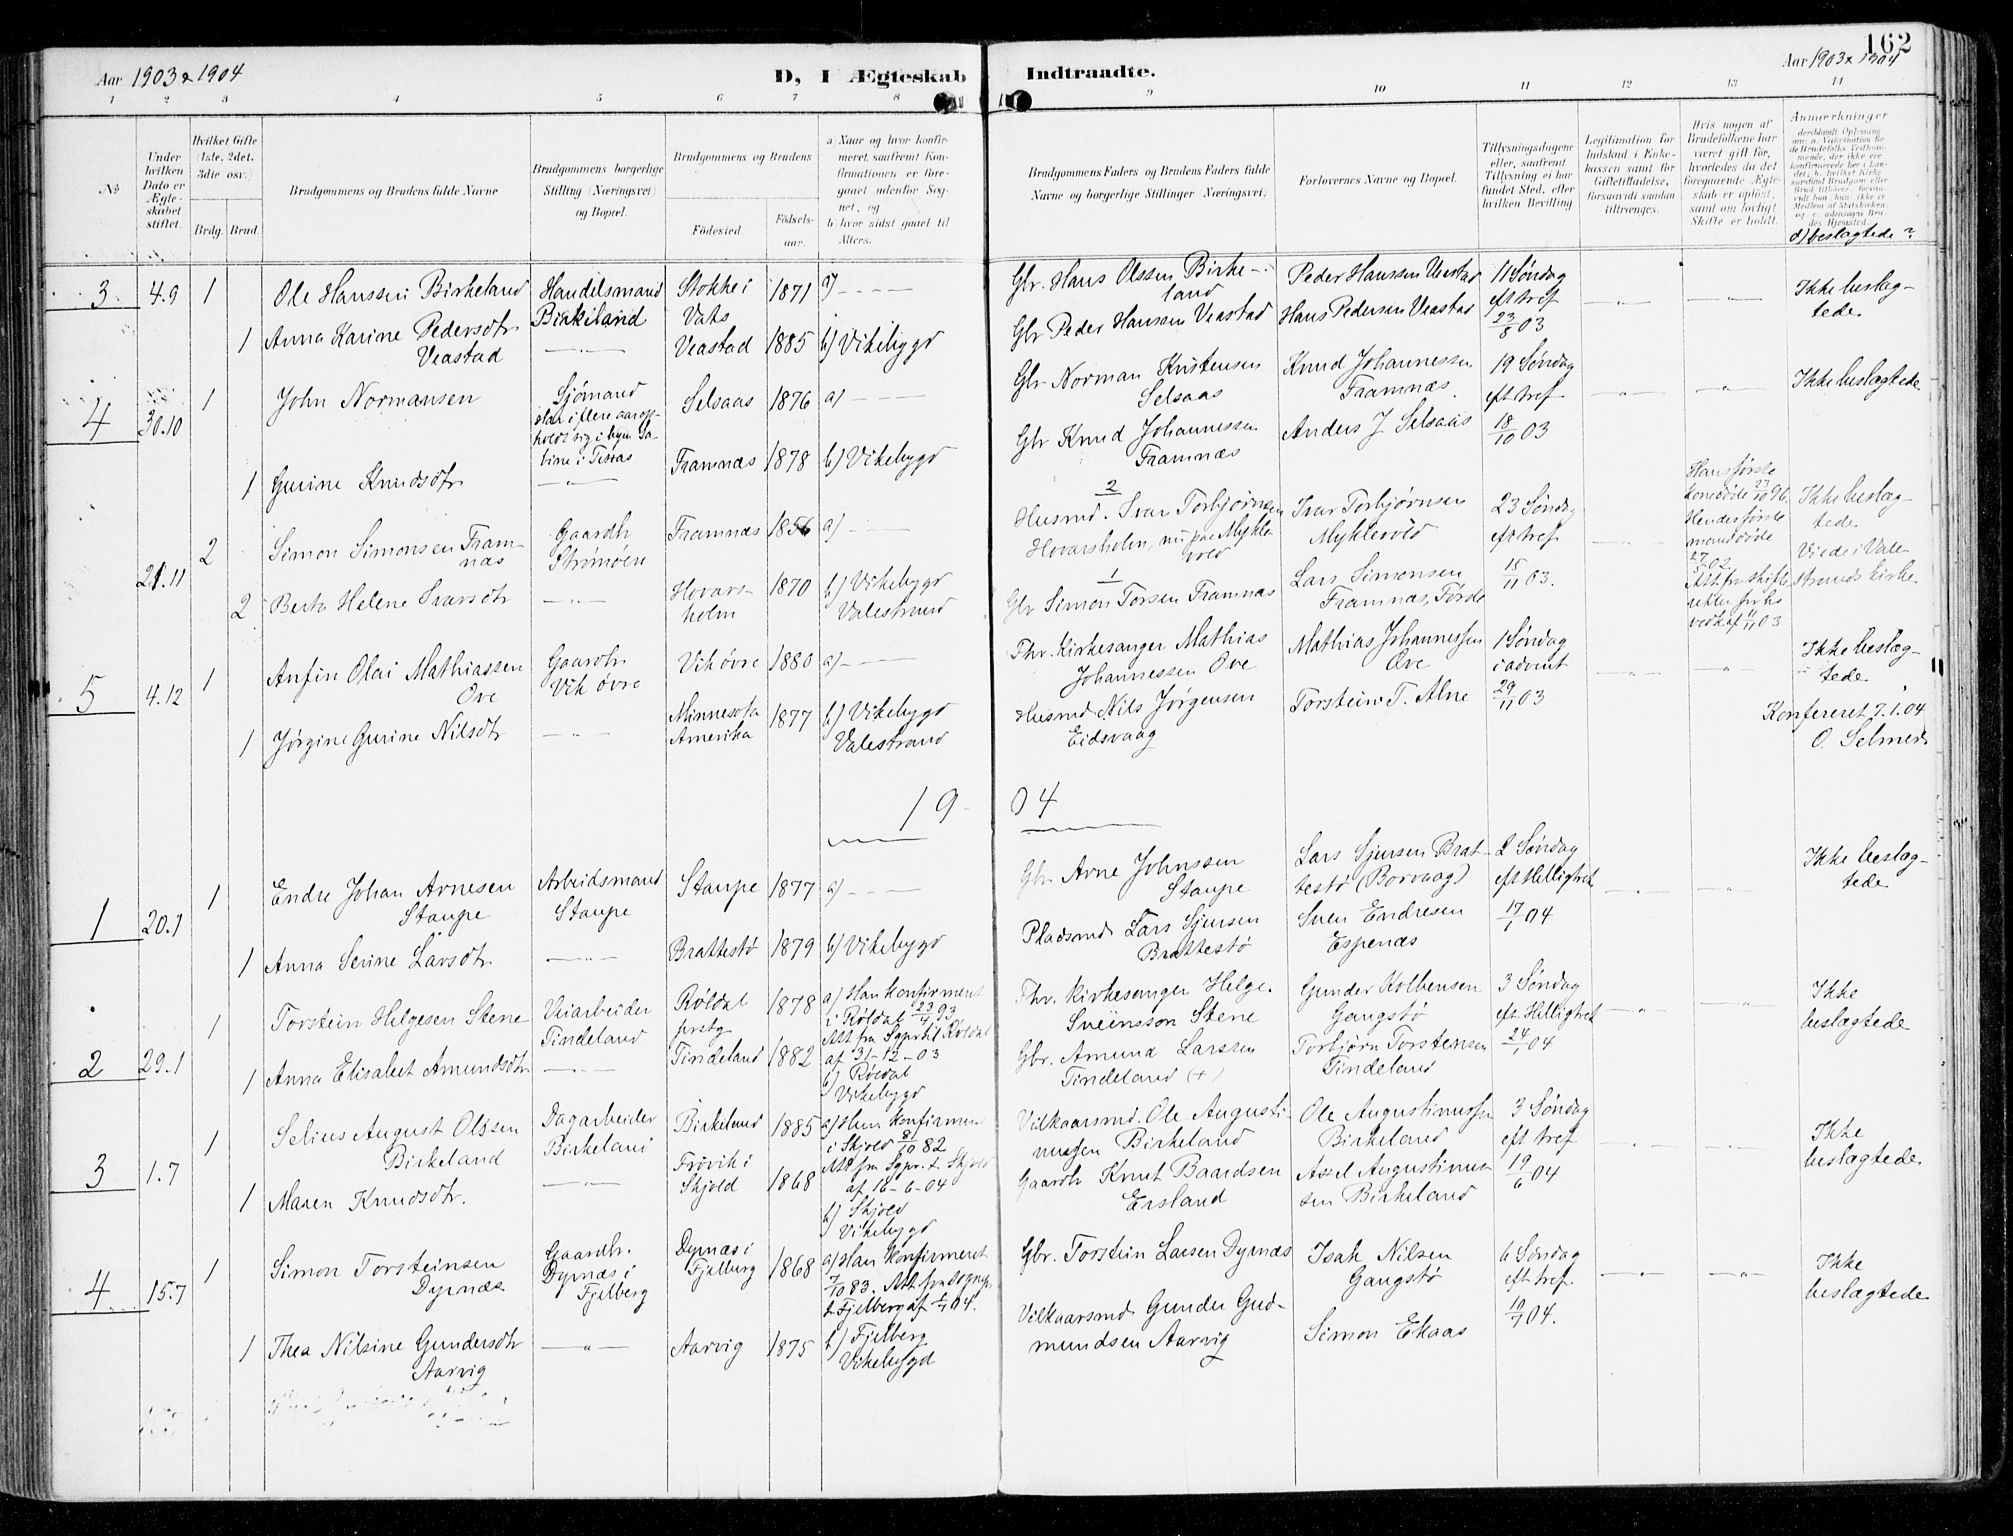 162
Aar 1903 & 1904
D, I Ægteskab Indtraadte.
Aar 1903 & 1904
1 2 3 4 5 6 7 8 9 10 11 12 13 14
№
Under hvilken Dato er Ægteskabet stiftet.
Hvilket Gifte (1ste, 2det, 3die osv.)
Brdg. Brud.
Brudgommens og Brudens fulde Navne
Brudgommens borgerlige Stilling (Næringsvei) og Bopæl.
Brudgommens og Brudens
Fødested
Fødselsaar.
a) Naar og hvor konfirmeret, saafremt Konfirmationen er foregaaet udenfor Sognet, og
b) hvor sidst gaaet til Alters.
Brudgommens Faders og Brudens Faders fulde Navne og borgerlige Stillinger (Næringsvei)
Forlovernes Navne og Bopæl.
Tillysningsdagene eller, saafremt Tillysning ei har fundet Sted, efter hvilken Bevilling
Legitimation for Indskud i Enkekassen samt for Giftetilladelse, forsaavidt saadan tiltrænges.
Hvis nogen af Brudefolkene har været gift før, hvorledes da det foregaaende Ægteskab er opløst, samt om lovligt Skifte er holdt.
Anmerkninger
d) beslægtede?
3 4.9 1 Ole Hanssen Birkeland
Handelsmand Birkeland
Stokke i Vats 1871 a) — — —
Gbr. Hans Olssen Birkeland
Peder Hanssen Veastad
11 Søndag eft tref 23/8 03
Ikke beslægtede
1 Anna Karine Pedersdtr Veastad
— „ —
Veastad 1885 b) Vikebygd
Gbr Peder Hansen Veastad
Hans Pedersen Veastad
4 30.10 1 John Normansen
Sjømand
har i flere aar opholdt sig i byen Sabine i Texas
Selsaas 1876 a) — — —
Gbr Norman Kristensen Selsaas
Knud Johannessen Framnæs
19 Søndag eft tref 18/10 03
Ikke beslægtede
1 Gurine Knudsdtr
— „ —
Framnæs 1878 b) Vikebygd
Gbr Knud Johannessen Framnæs
Anders J Selsaas
21.11 2 Simon Simonsen Framnæs
Gaardb Strømøen
Framnæs 1856 a) — — —
2 Husmd. Ivar Torbjørnsen Hovarsholm, nu paa Myklevold
Ivar Torbjørnsen Myklevold
23 Søndag eft tref 15/11 03.
Hans første kone døde 23/10 96
Hendes første mand døde 27/5 02
Att fra skifteretten
Ikke beslægtede
Viede i Valestrands kirke.
2 Berta Helene Ivarsdtr
— „ —
Hovarsholm 1870 b) Vikebygd Valestrand
1 Gbr Simon Torsen Framnæs
Lars Simonsen Framnæs, Førde
5 4.12 1 Anfin Olai Mathiassen Ove
Gaardbr Vik øvre
Vik øvre 1880 a) — — —
Fhr. Kirkesanger Mathias Johannessen Ove
Mathias Johannessen Ove
1 Søndag i advent 29/11 03
Ikke beslægtede
1 Jørgine Gurine Nilsdtr
— „ —
Minnesota Amerika 1877 b) Vikebygd Valestrand
Husmd Nils Jørgensen Eidsvaag
Torstein T. Alne
Konfereret 7.1.04
O. Selmer
1904
1 20.1 1 Endre Johan Arnesen Staupe
Arbeidsmand Staupe
Staupe 1877 a) — — —
Gbr Arne Johnssen Staupe
Lars Sjursen Brattestø (Borvaag)
2 Søndag eft Helligtrek 17/1 04
Ikke beslægtede
1 Anna Serine Larsdtr
— „ —
Brattestø 1879 b) Vikebygd
Pladsmd Lars Sjursen Brattestø
Sven Endresen Espenæs
2 29.1 1 Torstein Helgesen Stene
Veiarbeider Tindeland
Røldal prstg 1878
a) Han konfirmeret i Røldal 23/4 93
Att fra Sgprt til Røldal af 31-12-03
Fhr. Kirkesanger Helge Sveinsson Stene
Gunder Kolbensen Gangstø
3 Søndag eft Helligtrek 24/1 04
Ikke beslægtede
1 Anna Elisabet Amundsdtr
— „ —
Tindeland 1882
b) Røldal Vikebygd
Gbr. Amund Larssen Tindeland (+)
Torbjørn Torstensen Tindeland
3 1.7 1 Selius August Olssen Birkeland
Dagarbeider Birkeland
Birkeland 1885
a) Hun konfirmeret i Skjold 8/10 82
Att fra Sgpr. t. Skjold af 16-6-04
Vilkaarsmd. Ole Augustinussen Birkeland
Ole Augustinussen Birkeland
3 Søndag eft tref 19/6 04
Ikke beslægtede
1 Maren Knudsdtr.
— „ —
Frøvik i Skjold 1868
b) Skjold Vikebygd
Gaardb Knut Baardsen Ersland
Axel Augustinussen Birkeland
4 15.7 1 Simon Torsteinsen Dyrnæs
Gaardbr. Dyrnæs i Fjelberg
Dyrnæs i Fjelberg 1868
a) Han konfirmeret 7/10 83. Att fra Sognepr. t. Fjelberg af 1/7 04.
Gbr. Torstein Larsen Dyrnæs
Isak Nilsen Gangstø
6 Søndag eft tref. 10/7 04.
Ikke beslægtede
1 Thea Nilsine Gundersdtr Aarvig
— „ —
Aarvig 1875
b) Fjelberg Vikebygd
Vilkaarsmd Gunder Gudmundsen Aarvig
Simon Ekaas